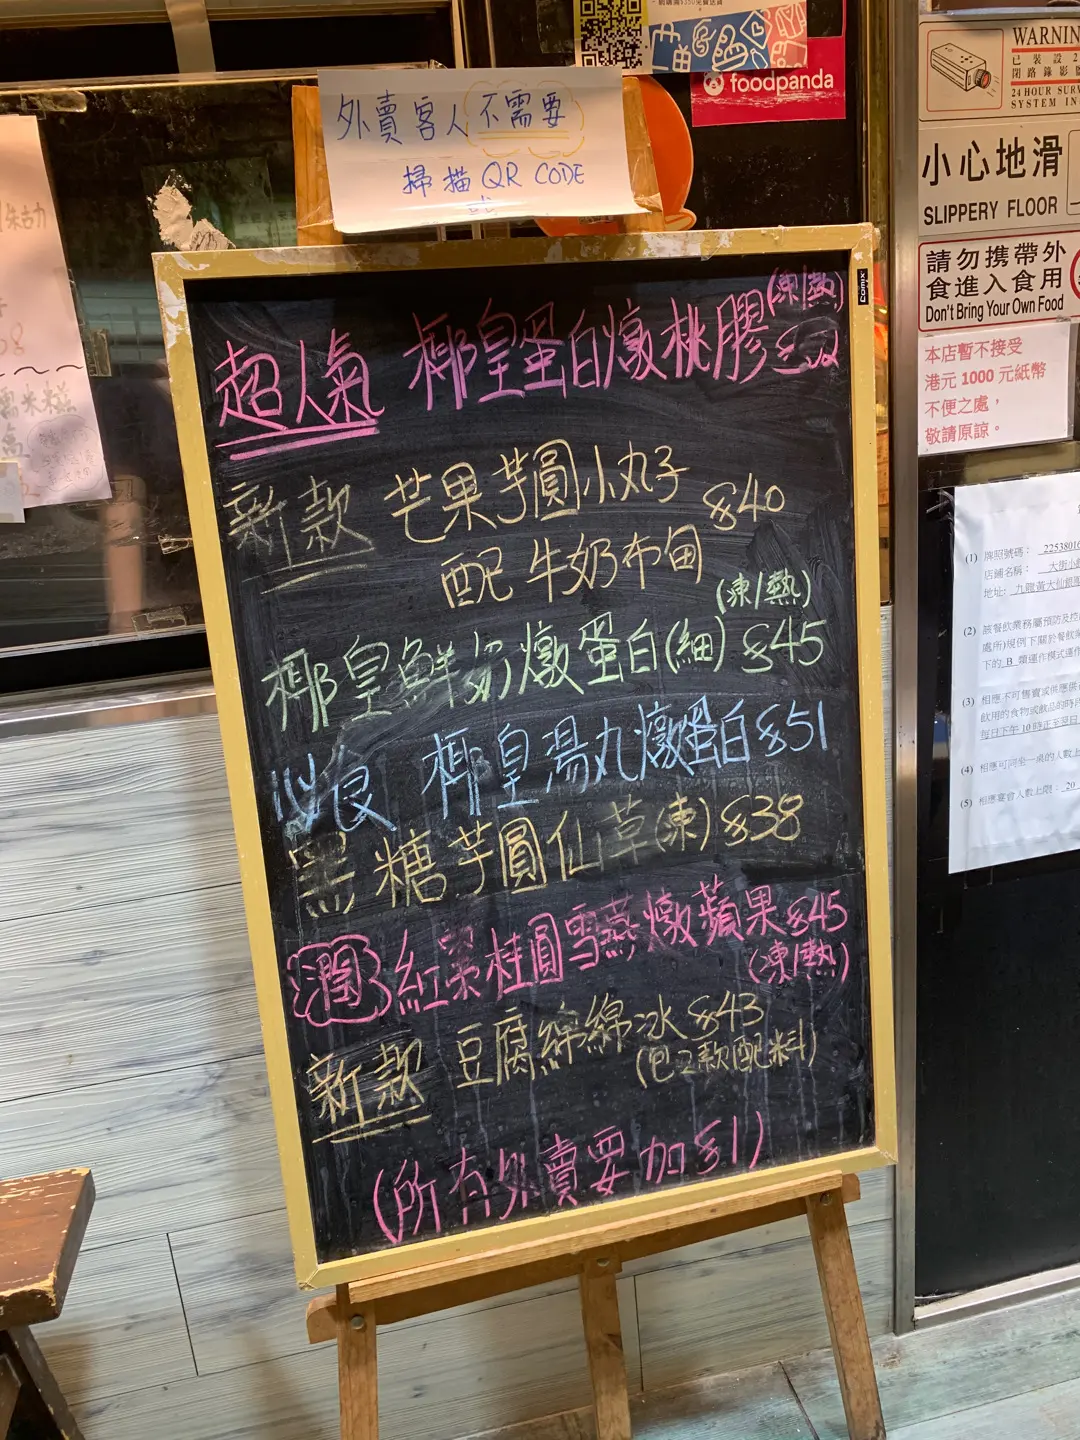 外賣客人不需要
掃描QR CODE
或
foodpanda
WARNIN
24 HOUR SURV
SYSTEM IN
小心地滑
SLIPPERY FLOOR
請勿攜帶外
食進入食用
Don't Bring Your Own Food
本店暫不接受
港元 1000 元紙幣
不便之處，
敬請原諒。
(1) 牌照號碼：
店鋪名稱：
地址：
超人氣 椰皇蛋白燉桃膠(凍/熱)
新款 芒果芋圓小丸子 $40
配牛奶布甸
(凍/熱)
椰皇鮮奶燉蛋白(細) $45
必食 椰皇湯丸燉蛋白 $51
黑糖芋圓仙草(凍) $38
潤 紅棗桂圓雪燕燉蘋果 $45
(凍/熱)
新款 豆腐綿綿冰 $43
(包2款配料)
(所有外賣要加$1)